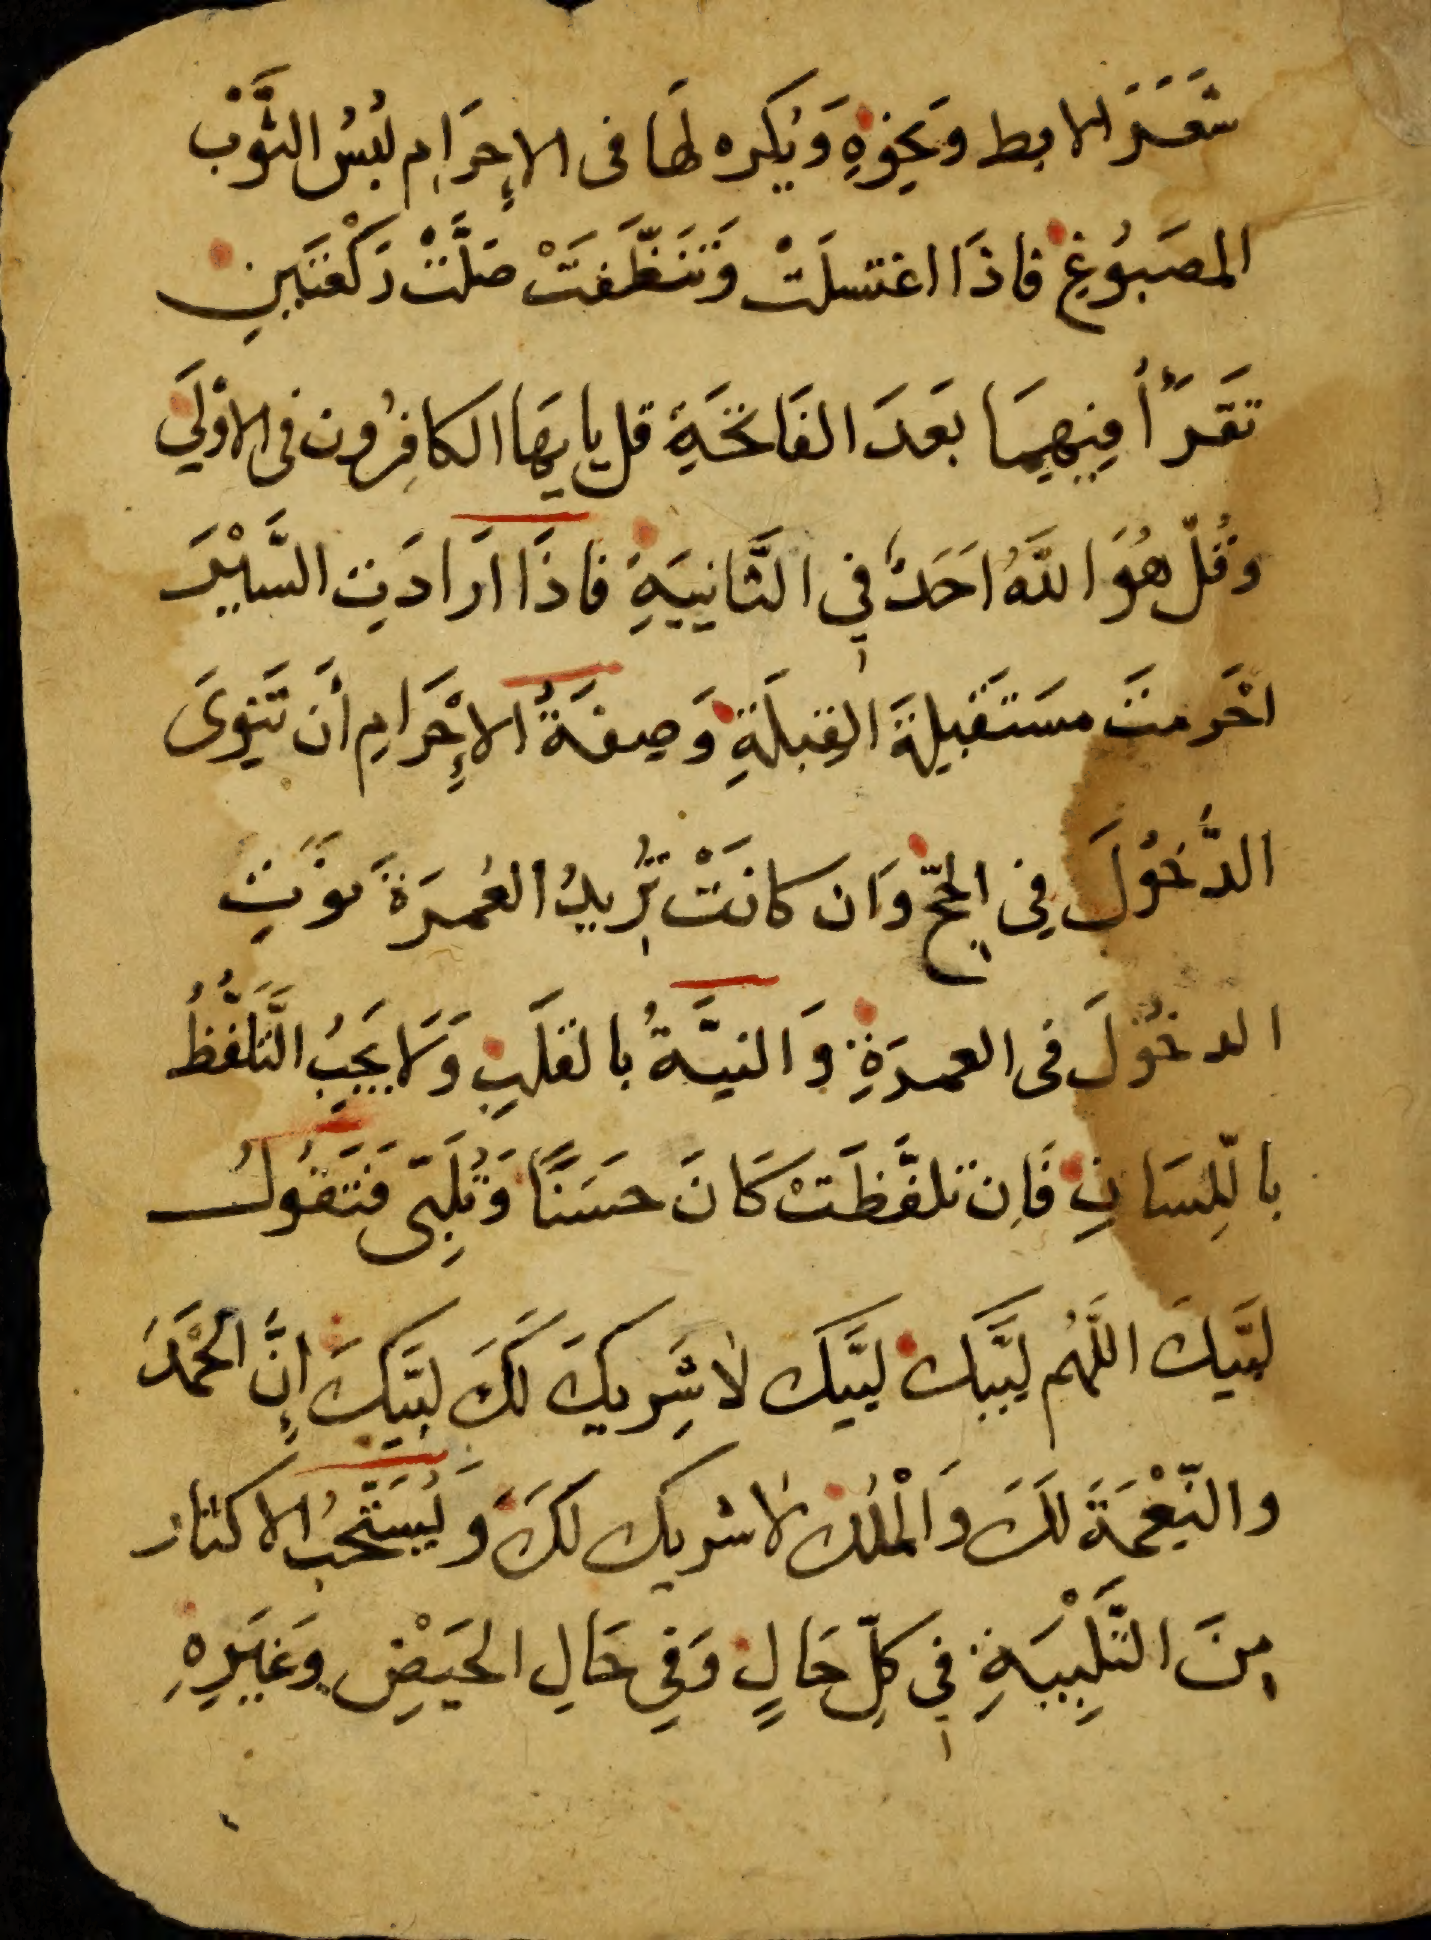 شَعَرَ الابط وَنَحِوْهِ وَيُكره لهَا فى الإحرَامِ لبُسُ الثَّوْبْ
المصَبُوغِ فاذَا اغتسلَتْ وَتَنَظَّفَتْ صَلَّتْ رَكْعَتَيَنِ
تقَرَأ فِيهِمَا بَعَدَ الفَاتحَةِ قل يا يهَا الكافِرُون فى الاوْلَي
وَقُلّ هُوَ اللَّهُ احَدٌ فِي الثَّانِيَةِ فاذَا ارَادَتِ السَّيْرَ
احْرمتَ مسَتَقَبِلةَ القِبلَةِ وَصِفَةُ الإحْرَامِ أنَ تَنِوىَ
الدُّخُولَ فِي الحجِّ وَان كانَتْ تُرِيدُ العُمرَةَ نوَتِ
الدخُولَ فى العمرَةِ وَالنيَّةُ بالقلَبِ وَلَا يَجِبُ التَّلَفُّظُ
باللِّسَانِ فَاِن تلفَّظَتْ كَانَ حسَنًا وَتُلَبِّى فَتَقُولُ
لبَّيكَ اللَّهُم لبَّيك لبَّيَك لاشَرِيكَ لَكَ لبَّيَكَ إنَّ الحَمْدَ
والنِّعْمَةَ لكَ وَالْمُلك لاشريك لكَ وَيُسَتَحَبُ الاكثار
مِنَ التَّلْبِيَةِ فِي كلِّ حَالٍ وَفِي حَالِ الحيَضِ وَغيَرِهِ